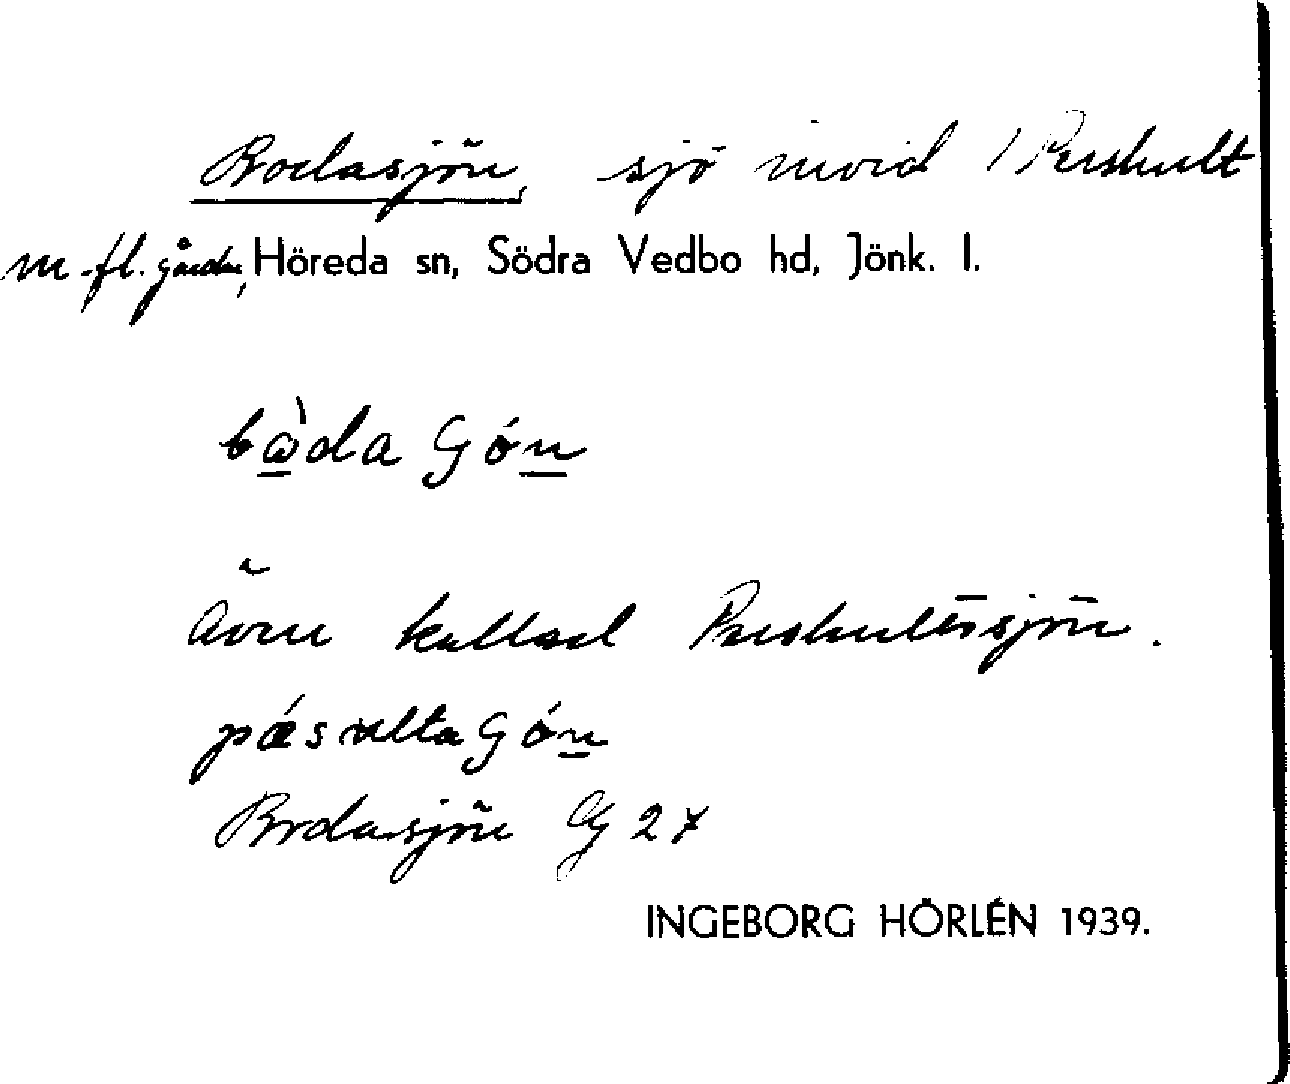 Bodasjön, sjö invid Pershult
m. fl. gårdar, Höreda sn, Södra Vedbo hd, Jönk. l.
även kallad Pershultssjön.
Bodasjön GJ 27
INGEBORG HÖRLÉN 1939.